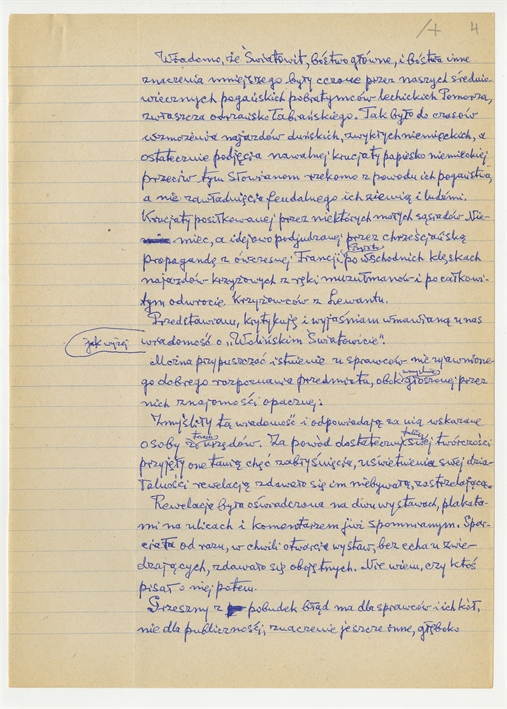 /+ 4
Wiadomo, że Światowit, bóstwo główne, i bóstwa inne
znaczenia mniejszego były czczone przez naszych średnio-
wiecznych pogańskich pobratymców lechickich Pomorza,
zwłaszcza odrzańsko łabiańskiego. Tak było do czasów
wzmożenia najazdów duńskich, zwykłych niemieckich, a
ostatecznie podjęcia nawalnej krucjaty papiesko niemieckiej
przeciw tym Słowianom rzekomo z powodu ich pogaństwa,
a nie zawładnięcia feudalnego ich ziemią i ludźmi.
Krucjaty posiłkowanej przez niektórych małych sąsiadów Nie-
miec, a ideowo podjudzanej przez chrześcijańską
propagandę z ówczesnej Francji, po wschodnich klęskach
najazdów krzyżowych z ręki muzułmanów i po całkowi-
tym odwrocie krzyżowców z Lewantu.
Przedstawiam, krytykuję i wyjaśniam wmawianą u nas
jak wyżej wiadomość o „Wolińskim Światowicie".
Można przypuszczać istnienie u sprawców nie ujawnione-
go dobrego rozpoznania przedmiotu, obok głoszonej przez
nich znajomości opacznej.
Zmyśliły tą wiadomość i odpowiadają za nią wskazane
osoby z urzędów. Za powód dostateczny swej twórczości
przyjęły one tanią chęć zabłyśnięcia, uświetnienia swej dzia-
łalności rewelacją zdawało się im niebywałą, zastrzelającą.
Rewelacja była oświadczona na dwu wystawach, plakata-
mi na ulicach i komentarzem już spomnianym. Spar-
ciała od razu, w chwili otwarcia wystaw, bez echa u zwie-
dzających, zdawało się obojętnych. Nie wiem, czy ktoś
pisał o niej potem.
Grzeszny z pobudek błąd ma dla sprawców i ich kół,
nie dla publiczności, znaczenie jeszcze inne, głęboko